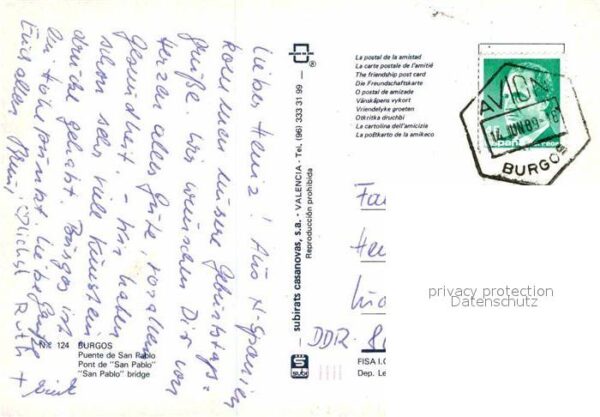 Lieber Heinz! Aus N-Spanien
kommen unsere Geburtstags=
grüße. Wir wünschen Dir von
Herzen alles Gute, vor allem
Gesundheit. – Wir haben
schon sehr viele Kunstein=
drücke gehabt. Burgos ist
ein Höhepunkt. Liebe Grüße
Euch allen
Ruth +
N.º 124 BURGOS
Puente de San Pablo
Pont de "San Pablo"
"San Pablo" bridge
subirats casanovas, s.a. - VALENCIA - Tel. (96) 333 31 99 -
Reproducción prohibida
®
subi
La postal de la amistad
La carte postale de l'amitié
The friendship post card
Die Freundschaftskarte
O postal de amizade
Vänskápens vykort
Vriendelijke groeten
Otkritka druchbi
La cartolina dell'amicizia
La poŝtkarto de la amikeco
AVION
14 JUN 89
BURGOS
Fa
He
DDR-8
FISA I.
Dep. Le
privacy protection
Datenschutz